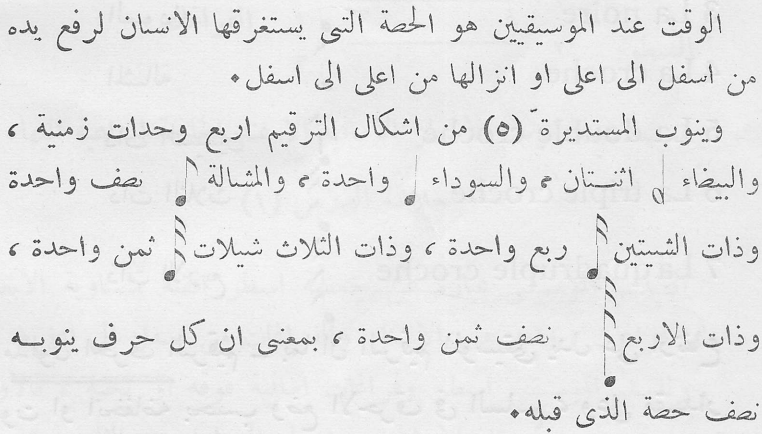 الوقت عند الموسيقيين هو الحصة التى يستغرقها الانسان لرفع يده
من اسفل الى اعلى او انزالها من اعلى الى اسفل.
وينوب المستديرة (٥) من اشكال الترقيم اربع وحدات زمنية ،
والبيضاء اثنتان ، والسوداء واحدة ، والمشالة نصف واحدة
وذات الشيتين ربع واحدة ، وذات الثلاث شيلات ثمن واحدة ،
وذات الاربع نصف ثمن واحدة ، بمعنى ان كل حرف ينوبه
نصف حصة الذى قبله.